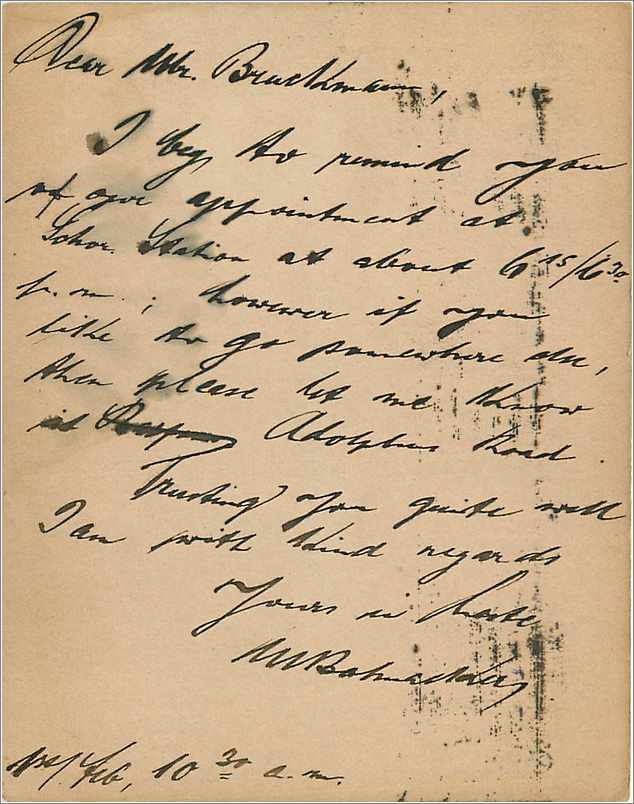 Dear Mr. Bruckmann,
I beg to remind you
of our appointment at
Station at about 6 15/6 30
p. m.; however if you
like to go somewhere else,
then please let me know
at Adolphus Road.
Trusting you quite well
I am with kind regards
Yours in haste
Feb, 10 30 a. m.